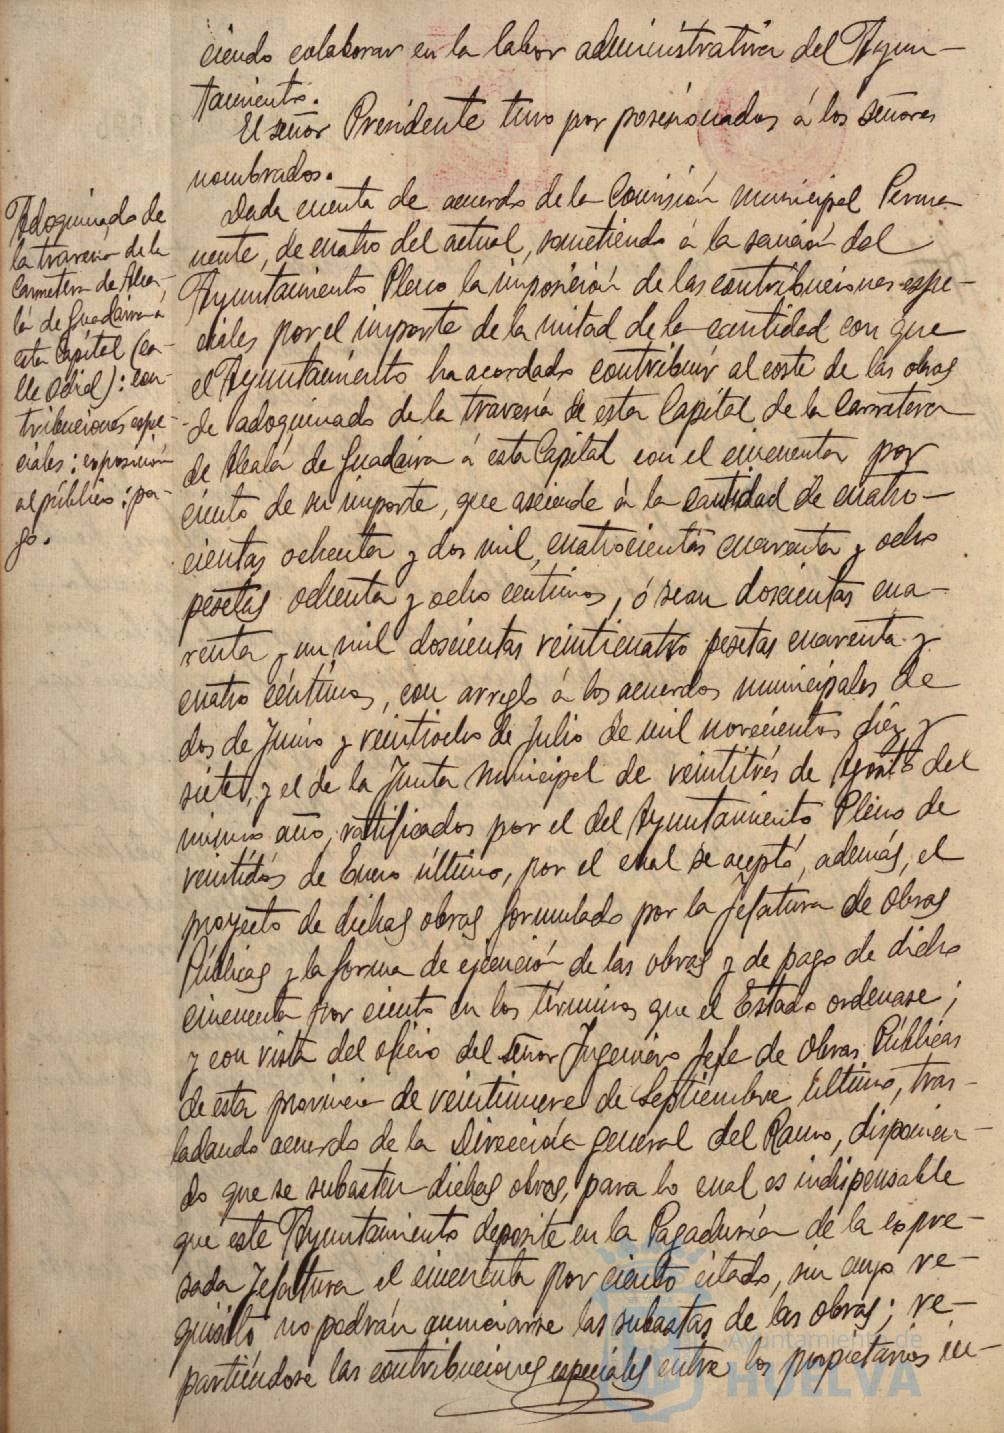 ciendo colaborar en la labor administrativa del Ayun-
tamiento.
El señor Presidente tuvo por posesionados á los señores
nombrados.
Adoquinado de
la travesía de la
Carretera de Alca-
lá de Guadaira a
esta Capital (ca-
lle Odiel): con-
tribuciones espe-
ciales: exposición
al público: pa-
go.
Dada cuenta de acuerdo de la Comisión municipal Perma-
nente, de cuatro del actual, sometiendo á la sanción del
Ayuntamiento Pleno la imposición de las contribuciones espe-
ciales por el importe de la mitad de la cantidad con que
el Ayuntamiento ha acordado contribuir al coste de las obras
de adoquinado de la travesía de esta Capital de la Carretera
de Alcalá de Guadaira á esta Capital con el cincuenta por
ciento de su importe, que asciende á la cantidad de cuatro-
cientas ochenta y dos mil, cuatrocientas cuarenta y ocho
pesetas ochenta y ocho céntimos, ó sean doscientas cua-
renta y un mil doscientas veinticuatro pesetas cuarenta y
cuatro céntimos, con arreglo á los acuerdos municipales de
dos de Junio y veintiocho de Julio de mil novecientos diez y
siete, y el de la Junta Municipal de veintitrés de Agosto del
mismo año, ratificados por el del Ayuntamiento Pleno de
veintidós de Enero último, por el cual se aceptó, además, el
proyecto de dichas obras formulado por la Jefatura de Obras
Públicas y la forma de ejecución de las obras y de pago de dicho
cincuenta por ciento en los términos que el Estado ordenase;
y con vista del oficio del señor Ingeniero Jefe de Obras Públicas
de esta provincia de veintinueve de Septiembre último, tras-
ladando acuerdo de la Dirección general del Ramo, disponien-
do que se subasten dichas obras, para lo cual es indispensable
que este Ayuntamiento deposite en la Pagaduría de la expre-
sada Jefatura el cincuenta por ciento citado, sin cuyo re-
quisito no podrán anunciarse las subastas de las obras; re-
partiéndose las contribuciones especiales entre los propietarios in-
Ayuntamiento de
HUELVA